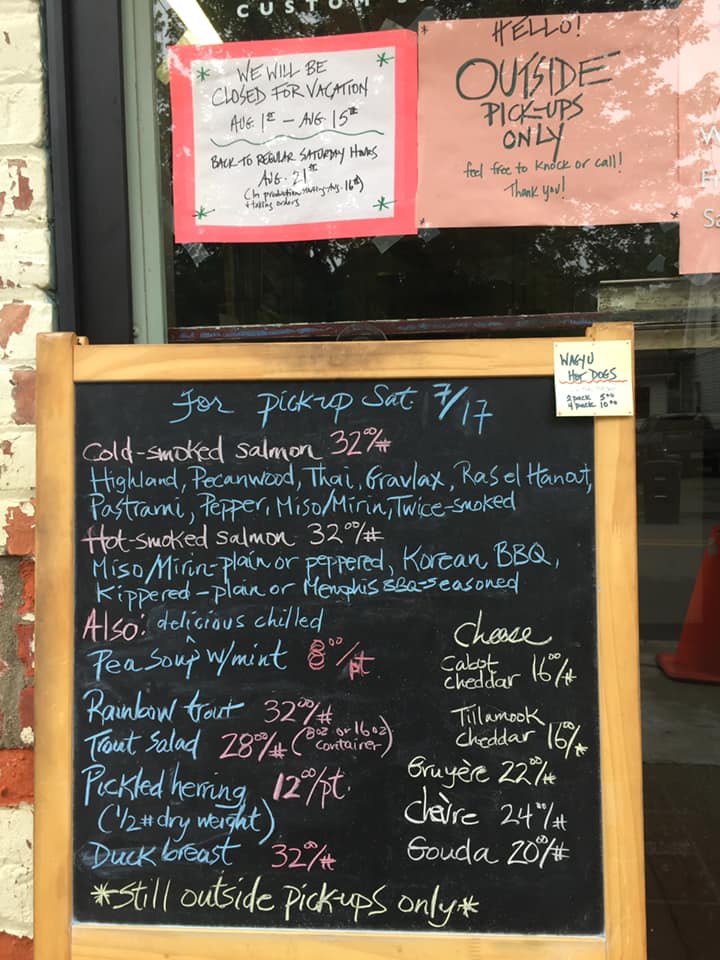 CUSTOM S
WE WILL BE
CLOSED FOR VACATION
AUG 1ST — AUG 15TH
BACK TO REGULAR SATURDAY HOURS
AUG. 21ST
(In production starting Aug. 16th)
& taking orders
HELLO!
OUTSIDE
PICK-UPS
ONLY
feel free to knock or call!
Thank you!
WAGYU
HOT DOGS
2 pack 5.00
4 pack 10.00
For pick-up Sat 7/17
Cold-smoked salmon 32.00/#
Highland, Pecanwood, Thai, Gravlax, Ras el Hanout,
Pastrami, Pepper, Miso/Mirin, Twice-smoked
Hot-smoked salmon 32.00/#
Miso/Mirin-plain or peppered, Korean BBQ,
Kippered-plain or Memphis BBQ-seasoned
Also: delicious chilled
Pea soup w/mint 8.00/pt.
Rainbow trout 32.00/#
Trout Salad 28.00/# (8oz or 16oz container)
Pickled herring 12.00/pt.
(1/2 # dry weight)
Duck breast 32.00/#
Cheese
Cabot
cheddar 16.00/#
Tillamook
cheddar 16.00/#
Gruyère 22.00/#
Chèvre 24.00/#
Gouda 20.00/#
*Still outside pick-ups only*